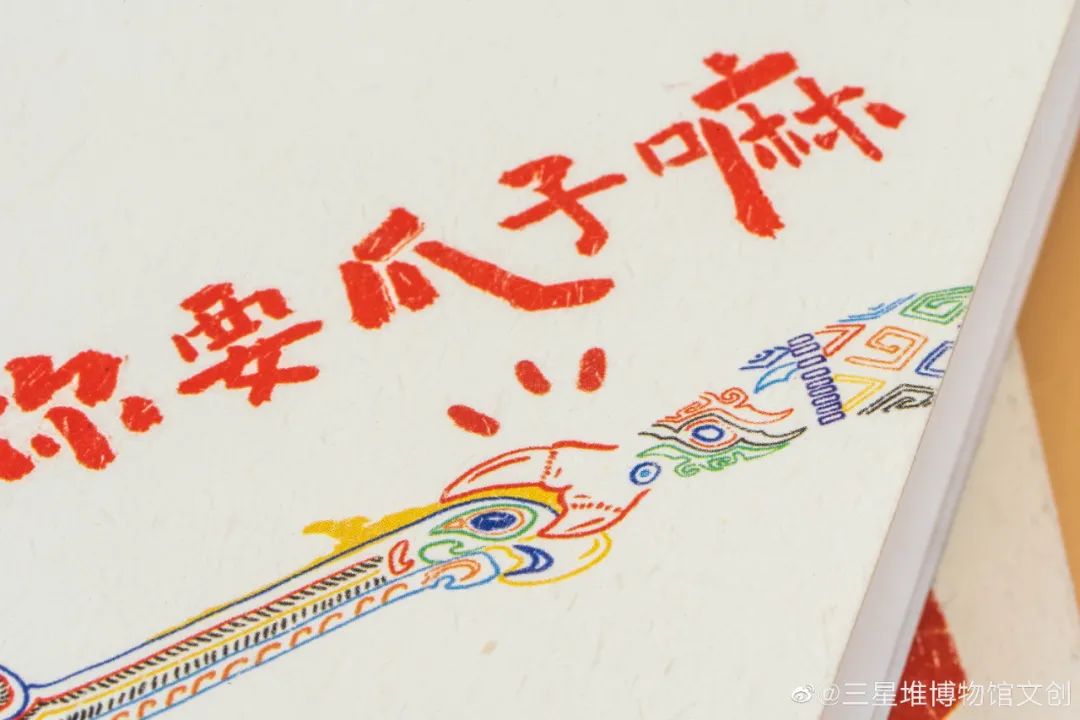 你要爪子嘛
@三星堆博物馆文创